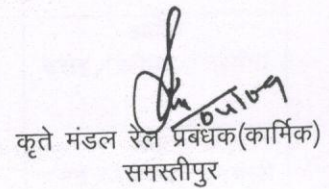 04/09
कृते मंडल रेल प्रबंधक(कार्मिक)
समस्तीपुर